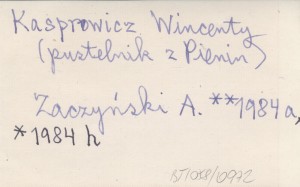 Kasprowicz Wincenty
(pustelnik z Pienin)
Zaczyński A. **1984a,
*1984 h